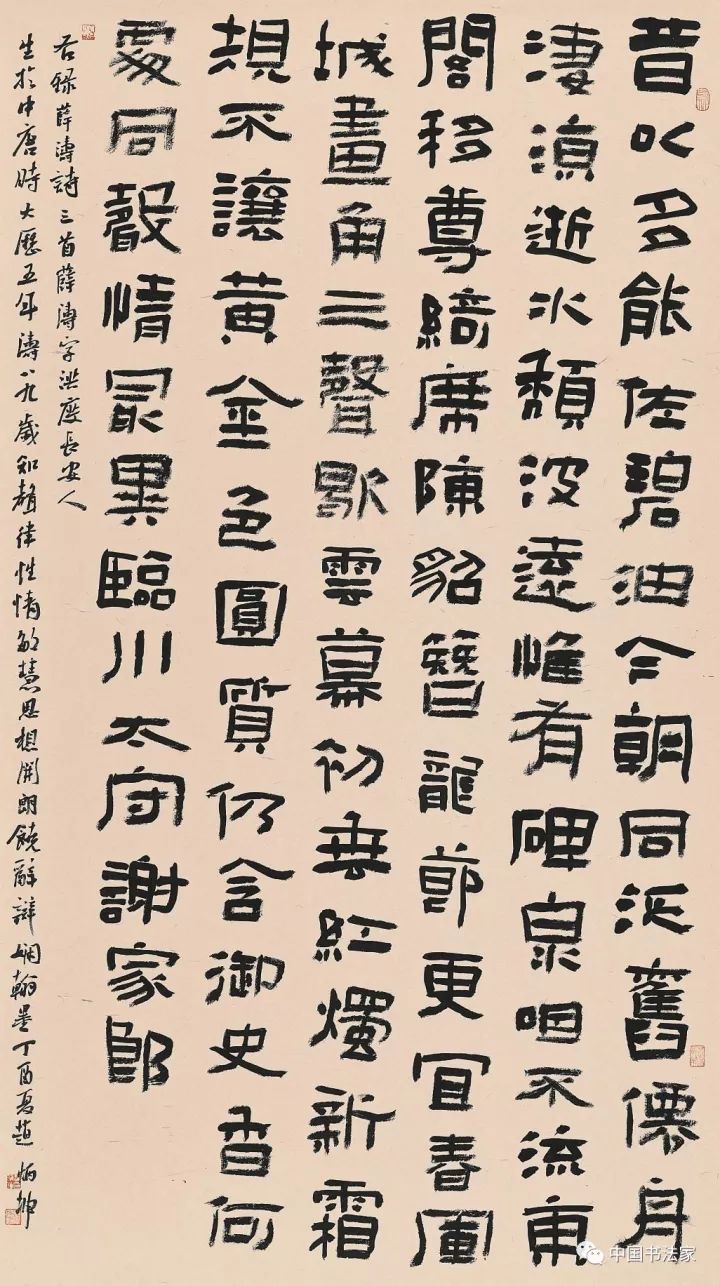 昔以多能佐碧油今朝同泛舊僊舟
淒涼逝水頹波遠惟有碑泉咽不流東
閣移尊綺席陳貂簪龍節更宜春軍
城畫角三聲歇雲幕初垂紅燭新霜
規不讓黃金色圓質仍含御史香何
處同聲情最異臨川太守謝家郎
右錄薛濤詩三首薛濤字洪度長安人
生於中唐時大歷五年濤八九歲知聲律性情敏慧思想開朗饒辭辯嫻翰墨丁酉夏趙炳
中国书法家